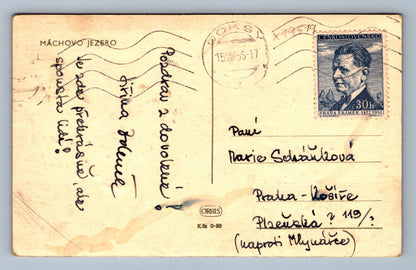 MÁCHOVO JEZERO
DOKSY
15.VII.55-17
ČESKOSLOVENSKO
30h
FRÁŇA ŠRÁMEK 1877-1952
Pozdrav z dovolené!
Jiřina
Je zde překrásně, ale
spousta lidí!
ORBIS
Paní
Marie Sehánková
Praha-Košíře
Plzeňská 119/?
(naproti Mlynářce)